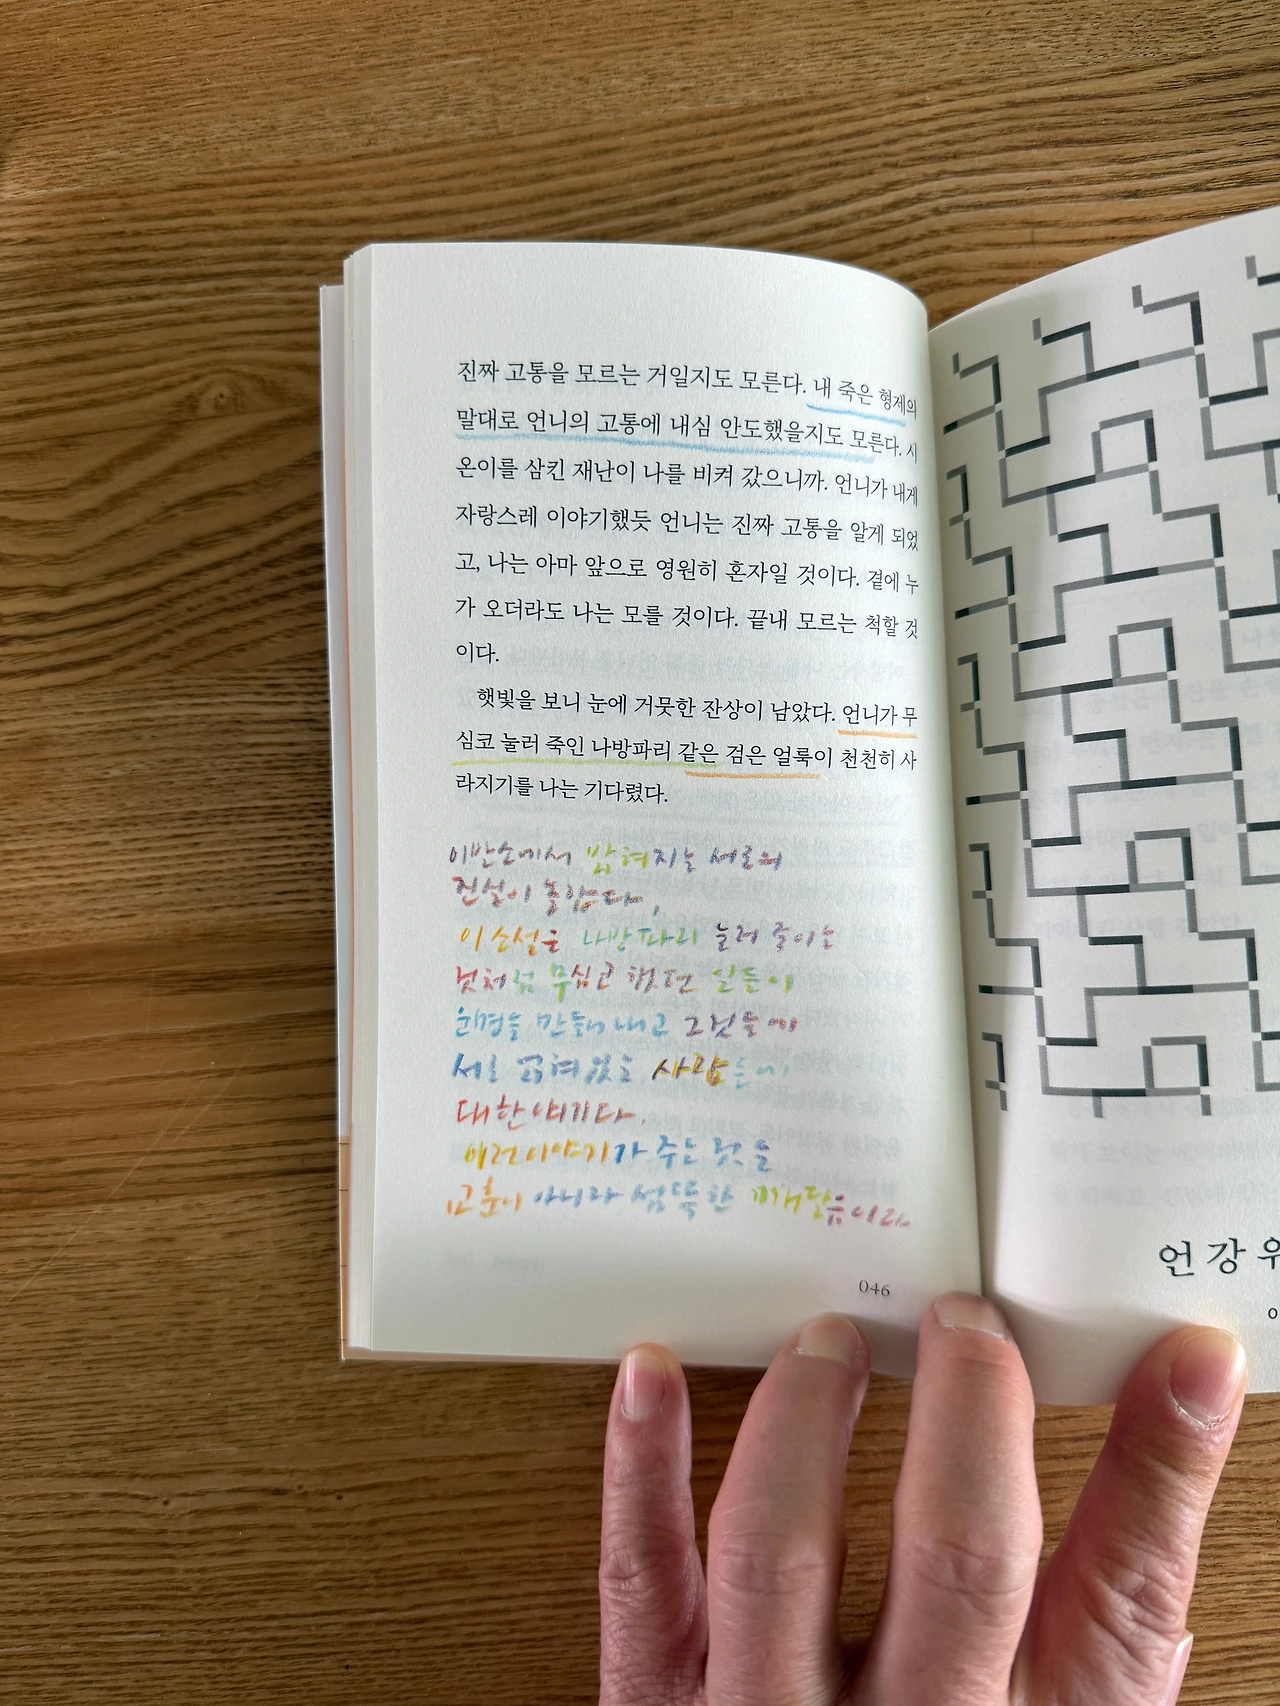 진짜 고통을 모르는 거일지도 모른다. 내 죽은 형제의
말대로 언니의 고통에 내심 안도했을지도 모른다. 시
온이를 삼킨 재난이 나를 비켜 갔으니까. 언니가 내게
자랑스레 이야기했듯 언니는 진짜 고통을 알게 되었
고, 나는 아마 앞으로 영원히 혼자일 것이다. 곁에 누
가 오더라도 나는 모를 것이다. 끝내 모르는 척할 것
이다.
햇빛을 보니 눈에 거뭇한 잔상이 남았다. 언니가 무
심코 눌러 죽인 나방파리 같은 검은 얼룩이 천천히 사
라지기를 나는 기다렸다.
이반소에서 밝혀지는 서로의
진실이 놀랍다,
이 소설은 나방파리 눌러 죽이는
것처럼 무심코 했던 일들이
운명을 만들어내고 그것들에
서로 얽혀있는 사람들에
대한 얘기다.
이런 이야기가 주는 것은
교훈이 아니라 섬뜩한 깨달음이라
046
언강